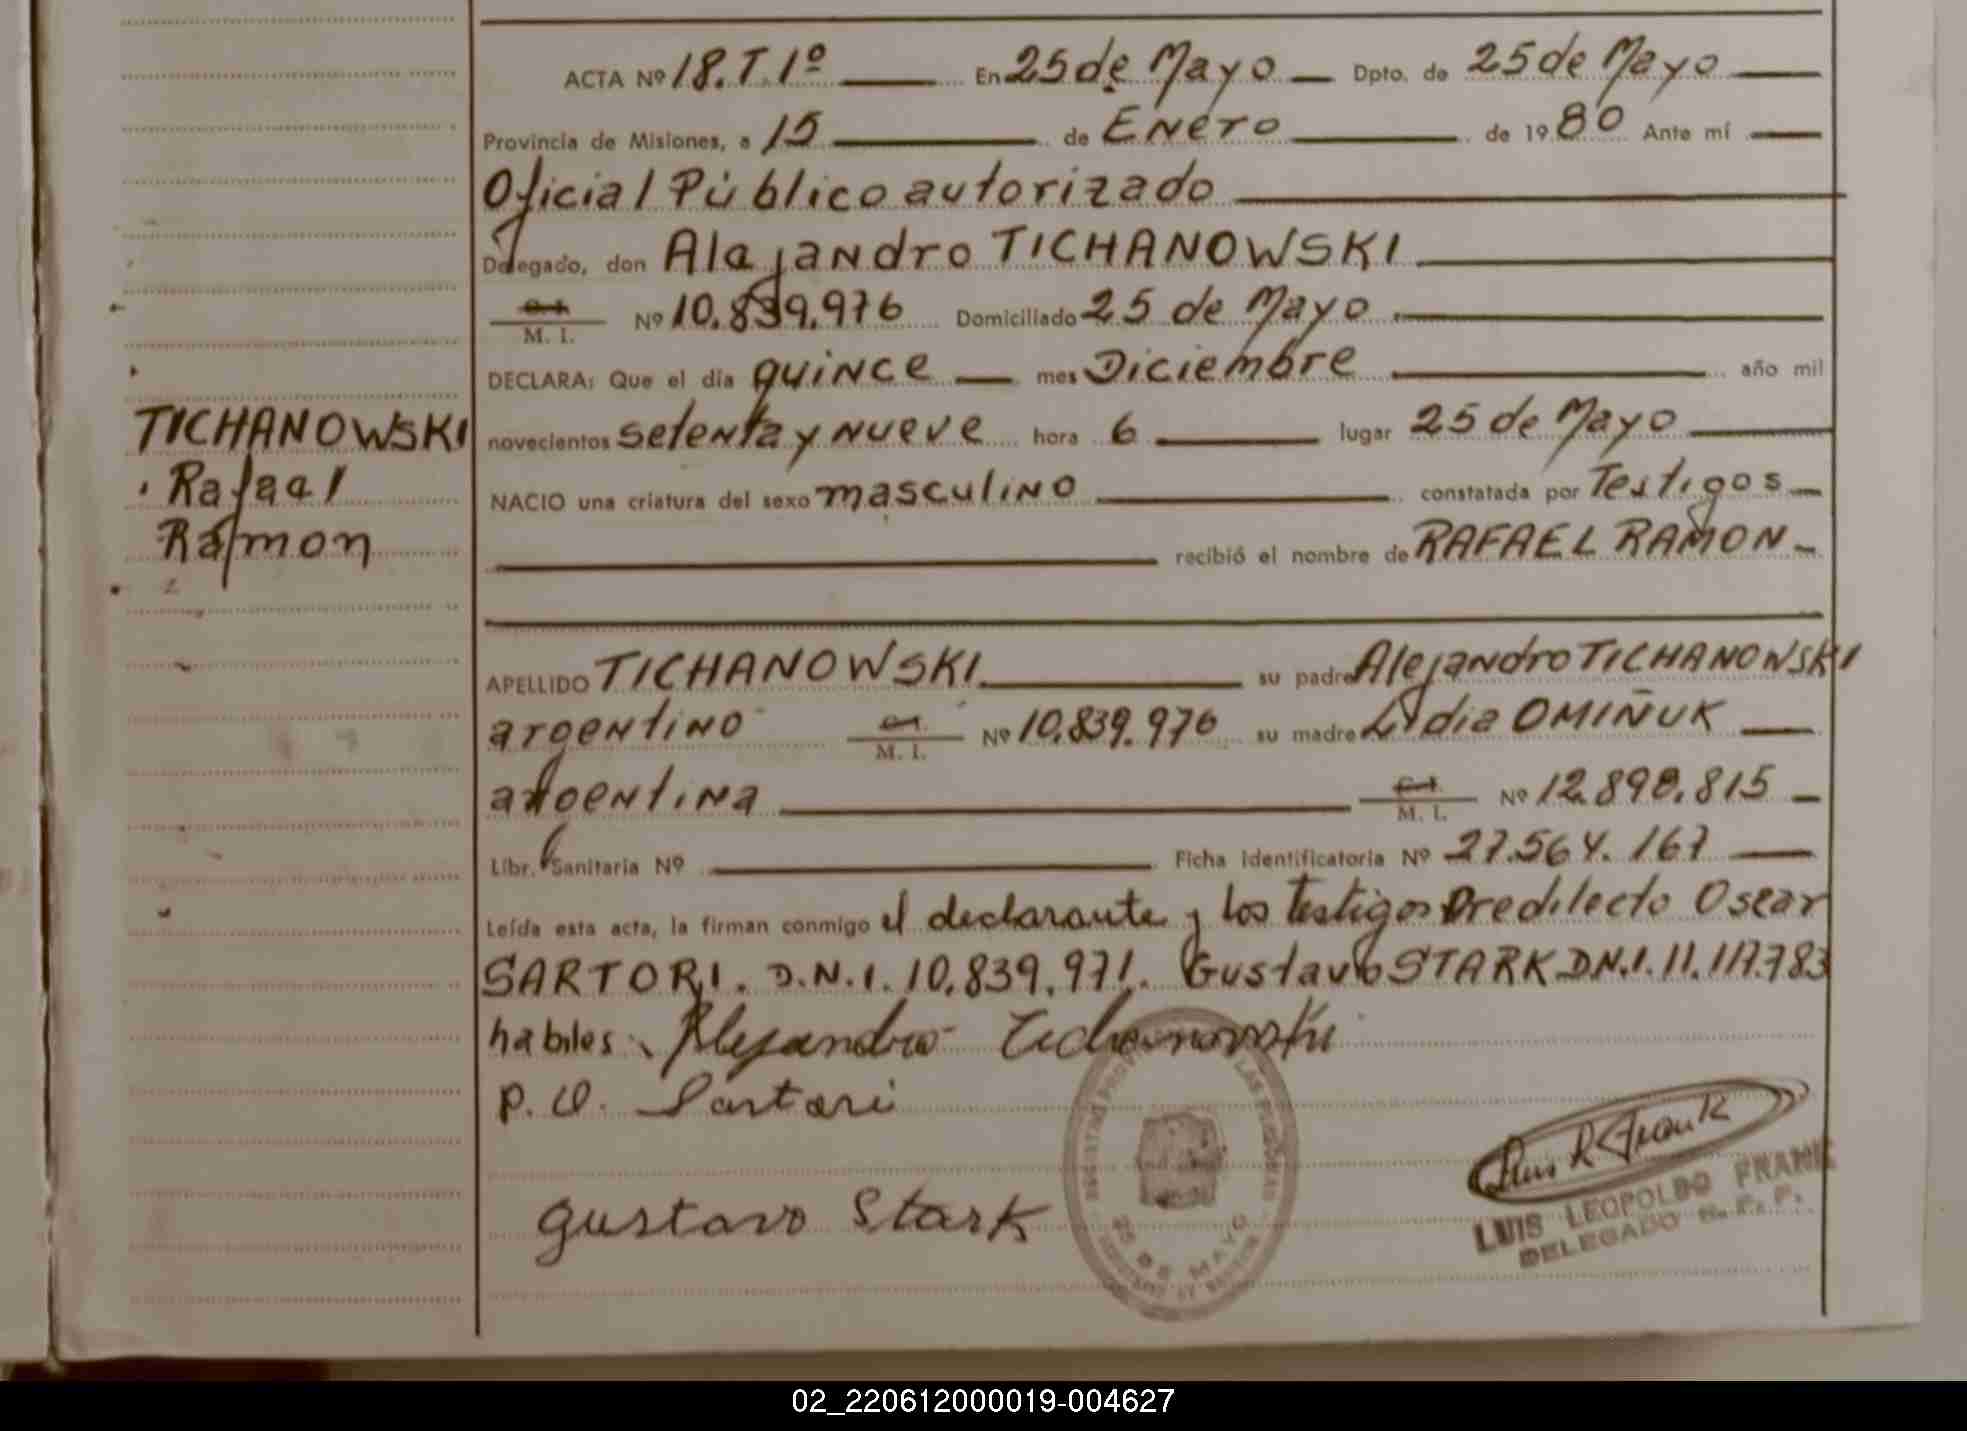 ACTA Nº 18. T. 1º En 25 de Mayo Dpto. de 25 de Mayo
Provincia de Misiones, a 15 de Enero de 1980 Ante mí
Oficial Público autorizado
Delegado, don Alejandro TICHANOWSKI
C.I. M. I. Nº 10.839.976 Domiciliado 25 de Mayo
DECLARA: Que el día quince mes Diciembre año mil
novecientos setenta y nueve hora 6 lugar 25 de Mayo
NACIO una criatura del sexo masculino constatada por Testigos
recibió el nombre de RAFAEL RAMON
TICHANOWSKI
Rafael
Ramon
APELLIDO TICHANOWSKI su padre Alejandro TICHANOWSKI
argentino C.I. M. I. Nº 10.839.976 su madre Lidia OMIÑUK
argentina C.I. M. I. Nº 12.898.815
Libr. Sanitaria Nº Ficha Identificatoria Nº 27.564.167
Leída esta acta, la firman conmigo el declarante y los testigos Predilecto Oscar
SARTORI. D.N.I. 10.839.971. Gustavo STARK D.N.I. 11.117.783
habiles. Alejandro Tichanowski
P. O. Sartori
Gustavo Stark
25 DE MAYO
Luis L. Frank
LUIS LEOPOLDO FRANK
DELEGADO R. P. P.
02_220612000019-004627